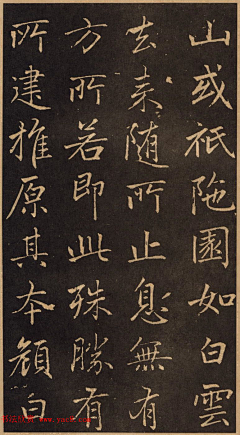 山或祇陁園如白雲
去来随所止息無有
方所若即此殊勝有
所建推原其本願自